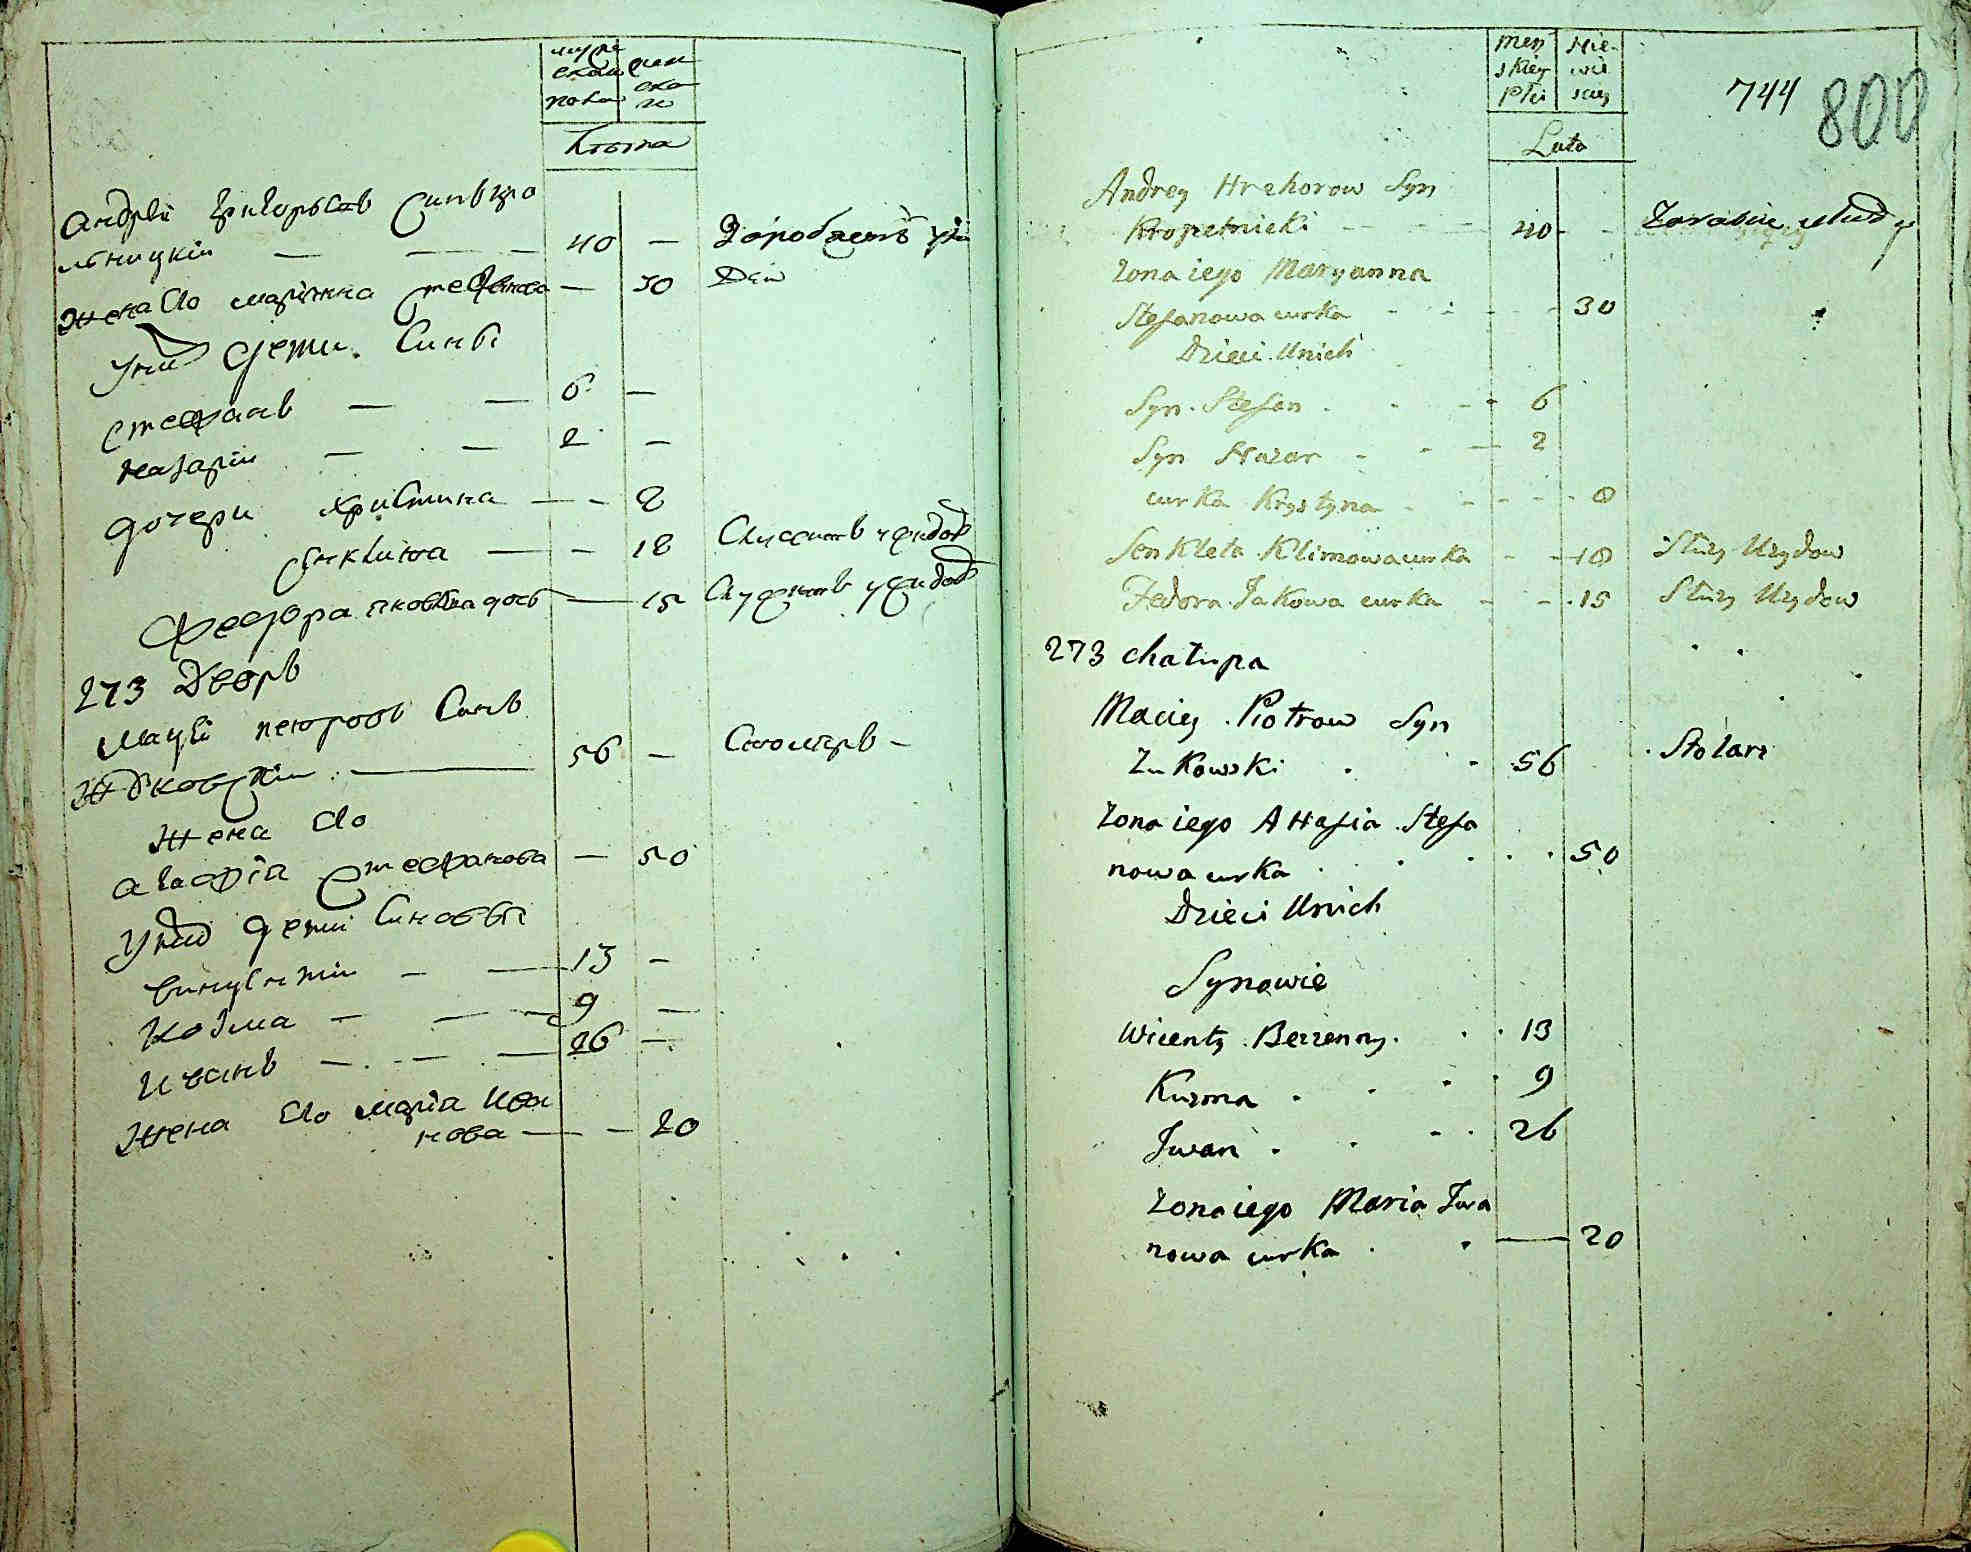 муже
скаго
пола
жен
ска
го
Андрей Григорьевъ Синъ Кро
льницкій — — — 40 —
Жена Его Маріянна Стефанова — 30
У них Дети Сины
Стефанъ — — 6 —
Назарій — — 2 —
Дочери Христина — - 8
Синклита — - 18
Федора Яковлева дочь — 15
273 Дворъ
Мацей Петровъ Синъ
Жуковскій — 56 — Столяръ —
Жена Его
Агафія Стефанова — 50
У них Дети Синовы
Винцентій — — 13 —
Козма — — - 9 —
Иванъ — - — — 26 —
Жена Его Марія Ива
нова — — 20
męs
skiey
płci
Nie-
wie
skiey
Lata
744
800
Andrey Hrehorow Syn
Kropelnicki - - - 40 - -
Zona iego Maryanna
Stefanowa curka - - - - 30
Dzieci U nich
Syn Stefan - - 6
Syn Nazar - - - 2
curka Krystyna - - - - 8
Senkleta Klimowa curka - - 18 Służy U Zydow
Fedora Jakowa curka - - 15 Służy U Zydow
273 chałupa
Maciey Piotrow Syn
Zukowski - 56 Stolarz
Zona iego Ahafia Stefa
nowa curka 50
Dzieci U nich
Synowie
Wicenty Bezzenny 13
Kuzma 9
Iwan 26
Zona iego Maria Iwa
nowa curka — 20